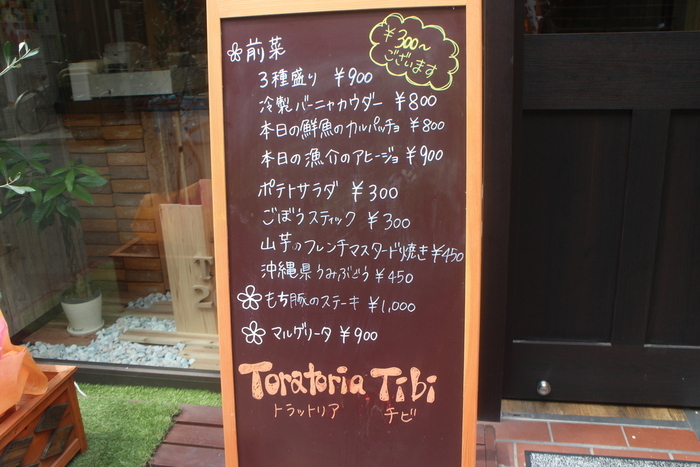 ¥300〜
ございます
前菜
3種盛り ¥900
冷製バーニャカウダー ¥800
本日の鮮魚のカルパッチョ ¥800
本日の漁介のアヒージョ ¥900
ポテトサラダ ¥300
ごぼうスティック ¥300
山芋のフレンチマスタード焼き ¥450
沖縄県うみぶどう ¥450
もち豚のステーキ ¥1,000
マルゲリータ ¥900
Toratoria Tibi
トラットリア チビ